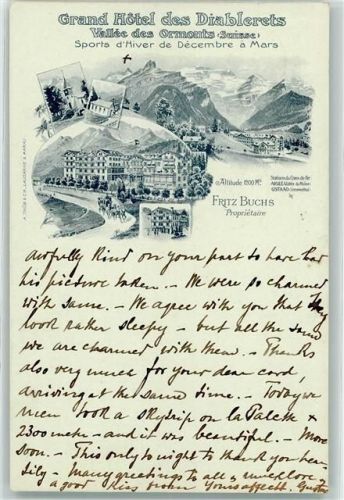 Grand Hôtel des Diablerets
Vallée des Ormonts (Suisse)
Sports d'Hiver de Décembre à Mars
Altitude 1200 M.
FRITZ BUCHS
Propriétaire
awfully kind on your part to have had
his picture taken. – We were so charmed
with same. – We agree with you that they
look rather sleepy – but all the same
we are charmed with them. – Thanks
also very much for your dear card,
arriving at the same time. – Today we
men took a skytrip on la Palette +
2300 metr – and it was beautiful. – More
soon. – This only to night to thank you hear-
tily – Many greetings to all & much love +
a good kiss from Yours affect.